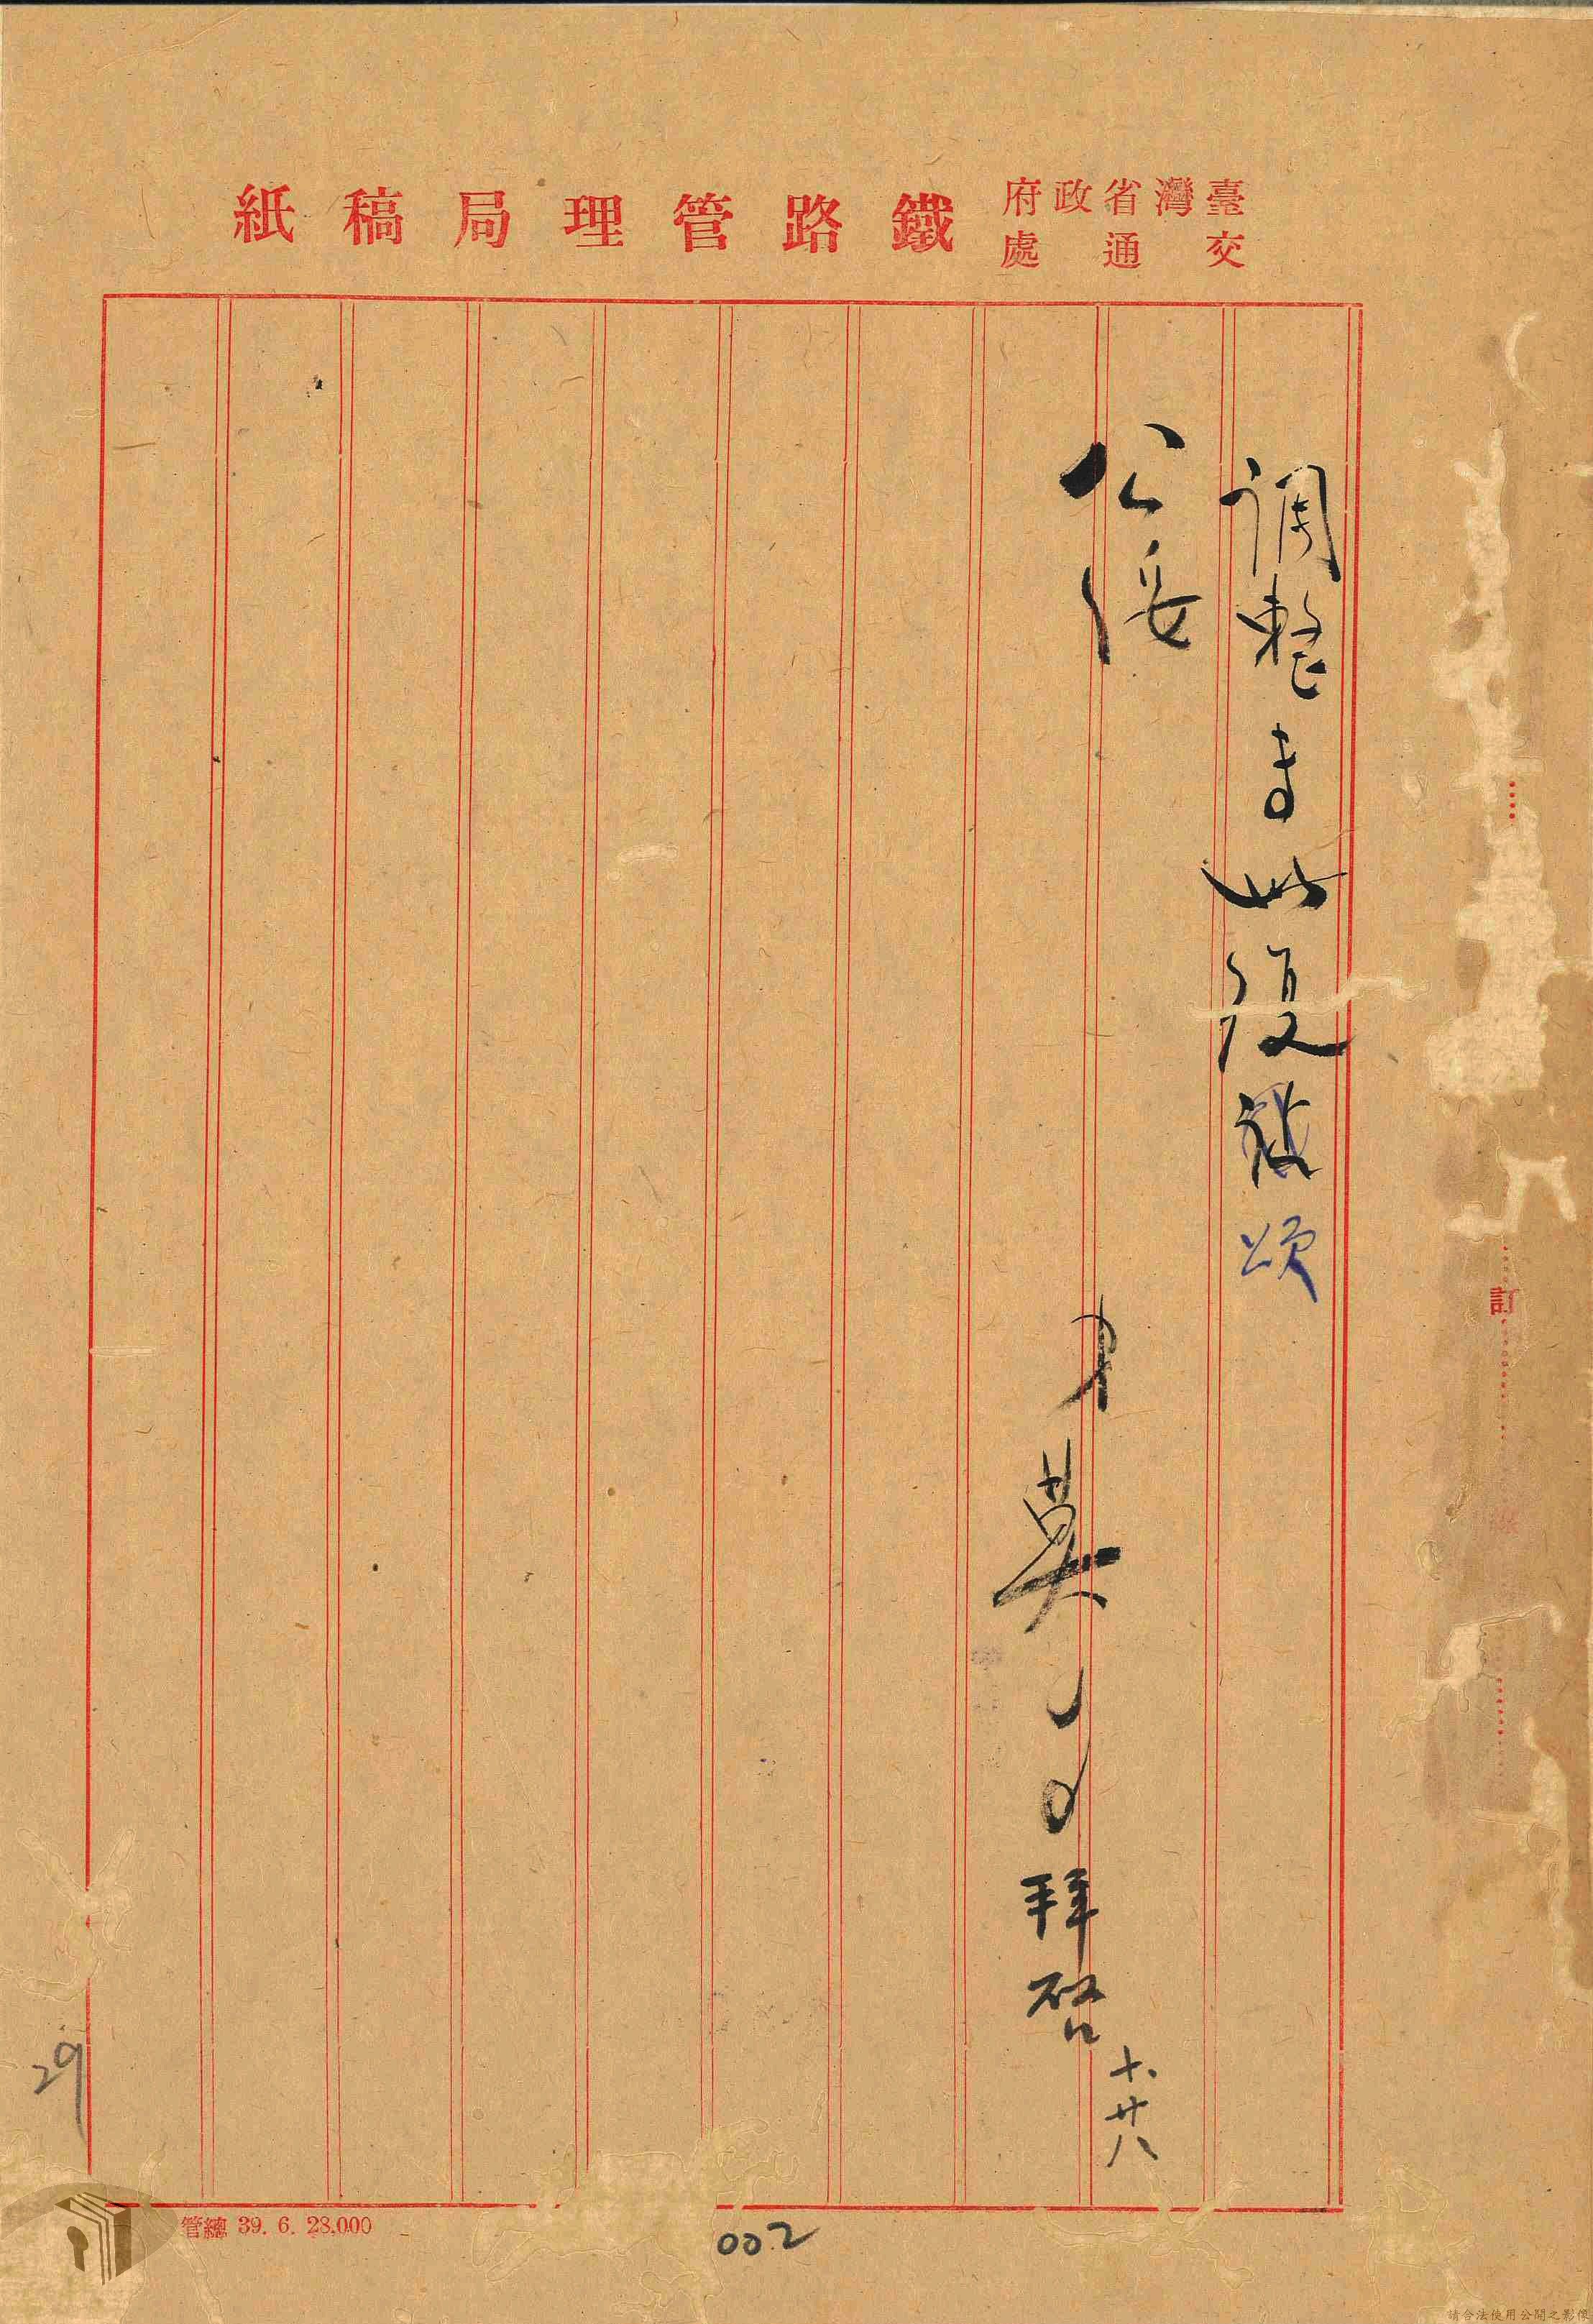 臺灣省政府
交通處
鐵路管理局稿紙
調整專此復頌
公綏
弟莫拜啓
十、廿八
訂
29
管總 39. 6. 28.000
002
請合法使用公開之影像